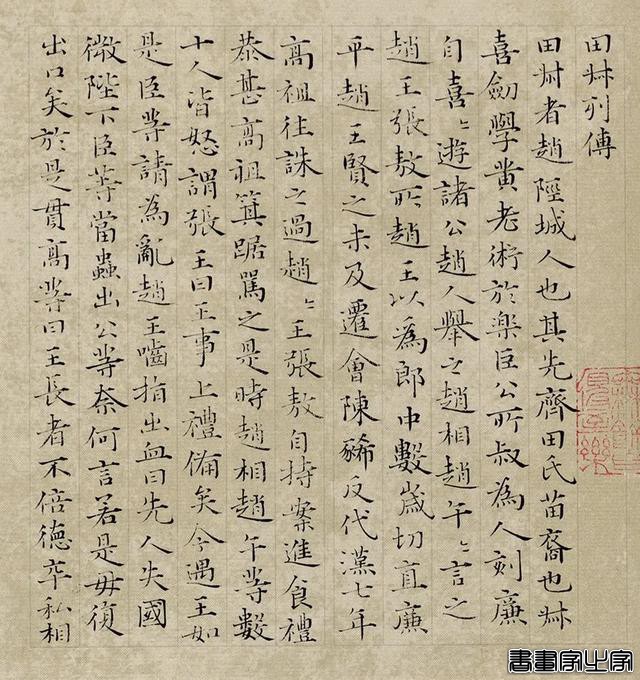 田叔列傳
田叔者趙陘城人也其先齊田氏苗裔也叔
喜劍學黃老術於樂臣公所叔為人刻廉
自喜〻遊諸公趙人舉之趙相趙午〻言之
趙王張敖所趙王以為郎中數歲切直廉
平趙王賢之未及遷會陳豨反代漢七年
高祖往誅之過趙〻王張敖自持案進食禮
恭甚高祖箕踞罵之是時趙相趙午等數
十人皆怒謂張王曰王事上禮備矣今遇王如
是臣等請為亂趙王嚙指出血曰先人失國
微陛下臣等當蟲出公等奈何言若是毋復
出口矣於是貫高等曰王長者不倍德卒私相
書畫家之家